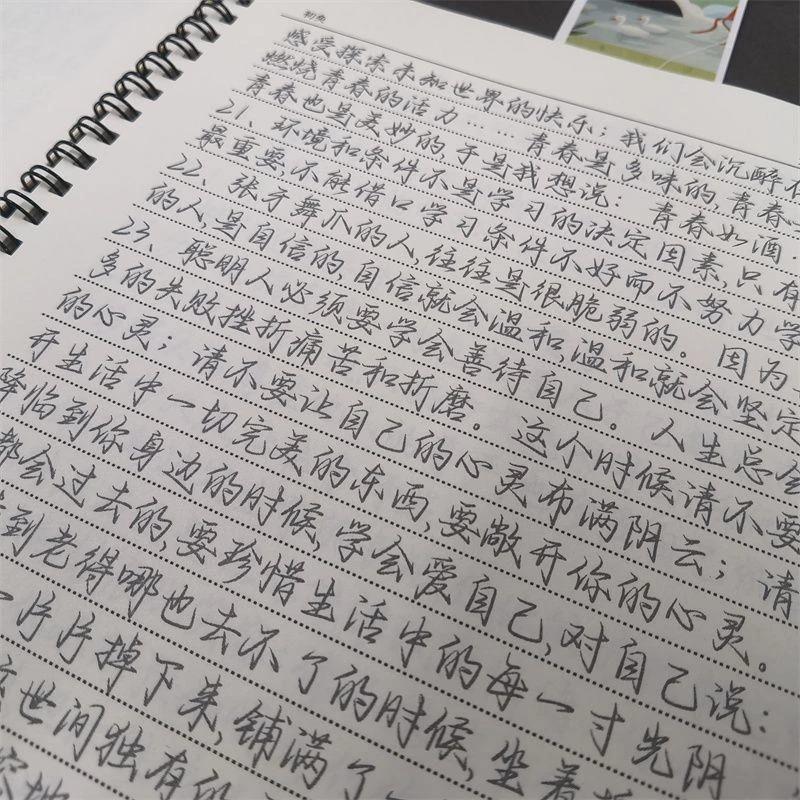 初九
感受探索未知世界的快乐；我们会沉醉
燃烧青春的活力……青春是多味的,青春
青春也是美妙的,于是我想说：青春如酒.
21、环境和条件不是学习的决定因素,只有
最重要,不能借口学习条件不好而不努力学
22、张牙舞爪的人,往往是很脆弱的。因为
的人,是自信的,自信就会温和,温和就会坚定
23、聪明人必须要学会善待自己。人生总会
多的失败挫折痛苦和折磨。这个时候请不要
的心灵；请不要让自己的心灵布满阴云；请
开生活中一切完美的东西,要敞开你的心灵。
降临到你身边的时候,学会爱自己,对自己说：
都会过去的,要珍惜生活中的每一寸光阴
到老得哪也去不了的时候,坐着
一片片掉下来,铺满了
世间独有的